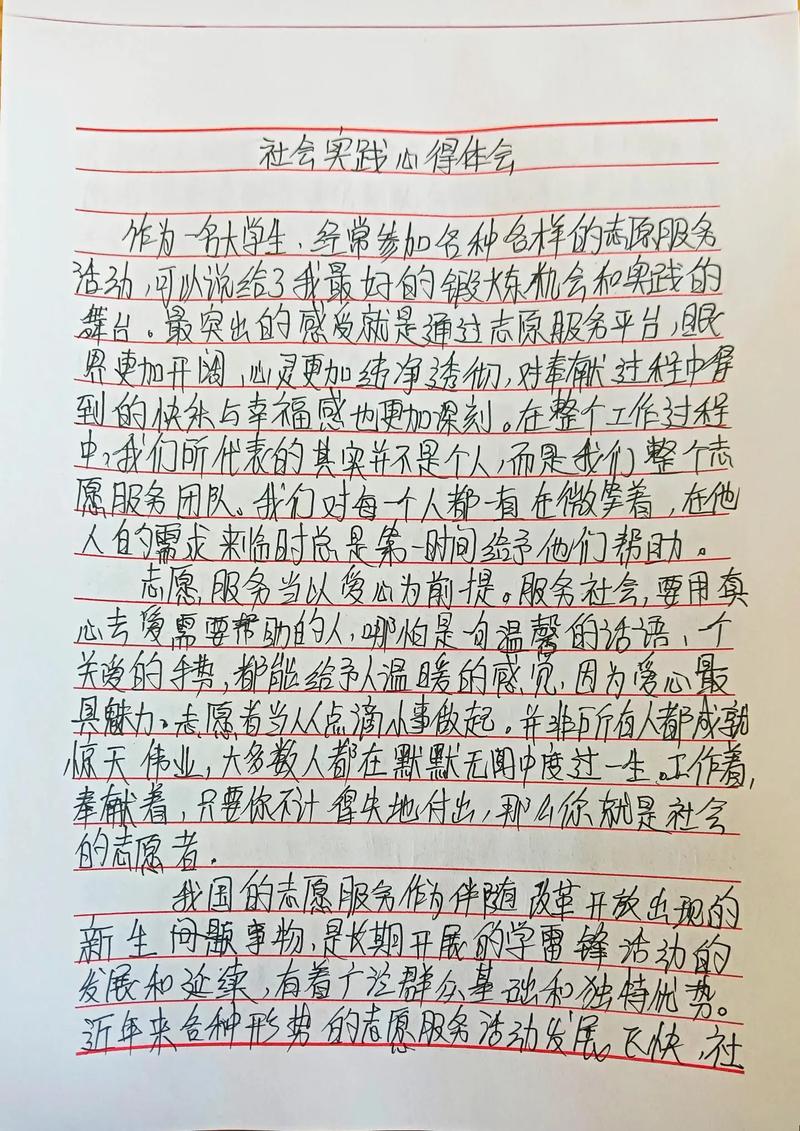 社会实践心得体会
作为一名大学生，经常参加各种各样的志愿服务
活动，可以说给了我最好的锻炼机会和实践的
舞台。最突出的感受就是通过志愿服务平台，眼
界更加开阔，心灵更加纯净透彻，对奉献过程中得
到的快乐与幸福感也更加深刻。在整个工作过程
中，我们所代表的其实并不是个人，而是我们整个志
愿服务团队。我们对每一个人都一直在微笑着，在他
人的需求来临时总是第一时间给予他们帮助。
志愿服务当以爱心为前提。服务社会，要用真
心去爱需要帮助的人，哪怕是一句温馨的话语，一个
关爱的手势，都能给予人温暖的感觉，因为爱心最
具魅力。志愿者当从点滴小事做起。并非所有人都成就
惊天伟业，大多数人都在默默无闻中度过一生。工作着，
奉献着，只要你不计得失地付出，那么你就是社会
的志愿者。
我国的志愿服务作为伴随改革开放出现的
新生问题事物，是长期开展的学雷锋活动的
发展和延续，有着广泛群众基础和独特优势。
近年来各种形势的志愿服务活动发展飞快，社